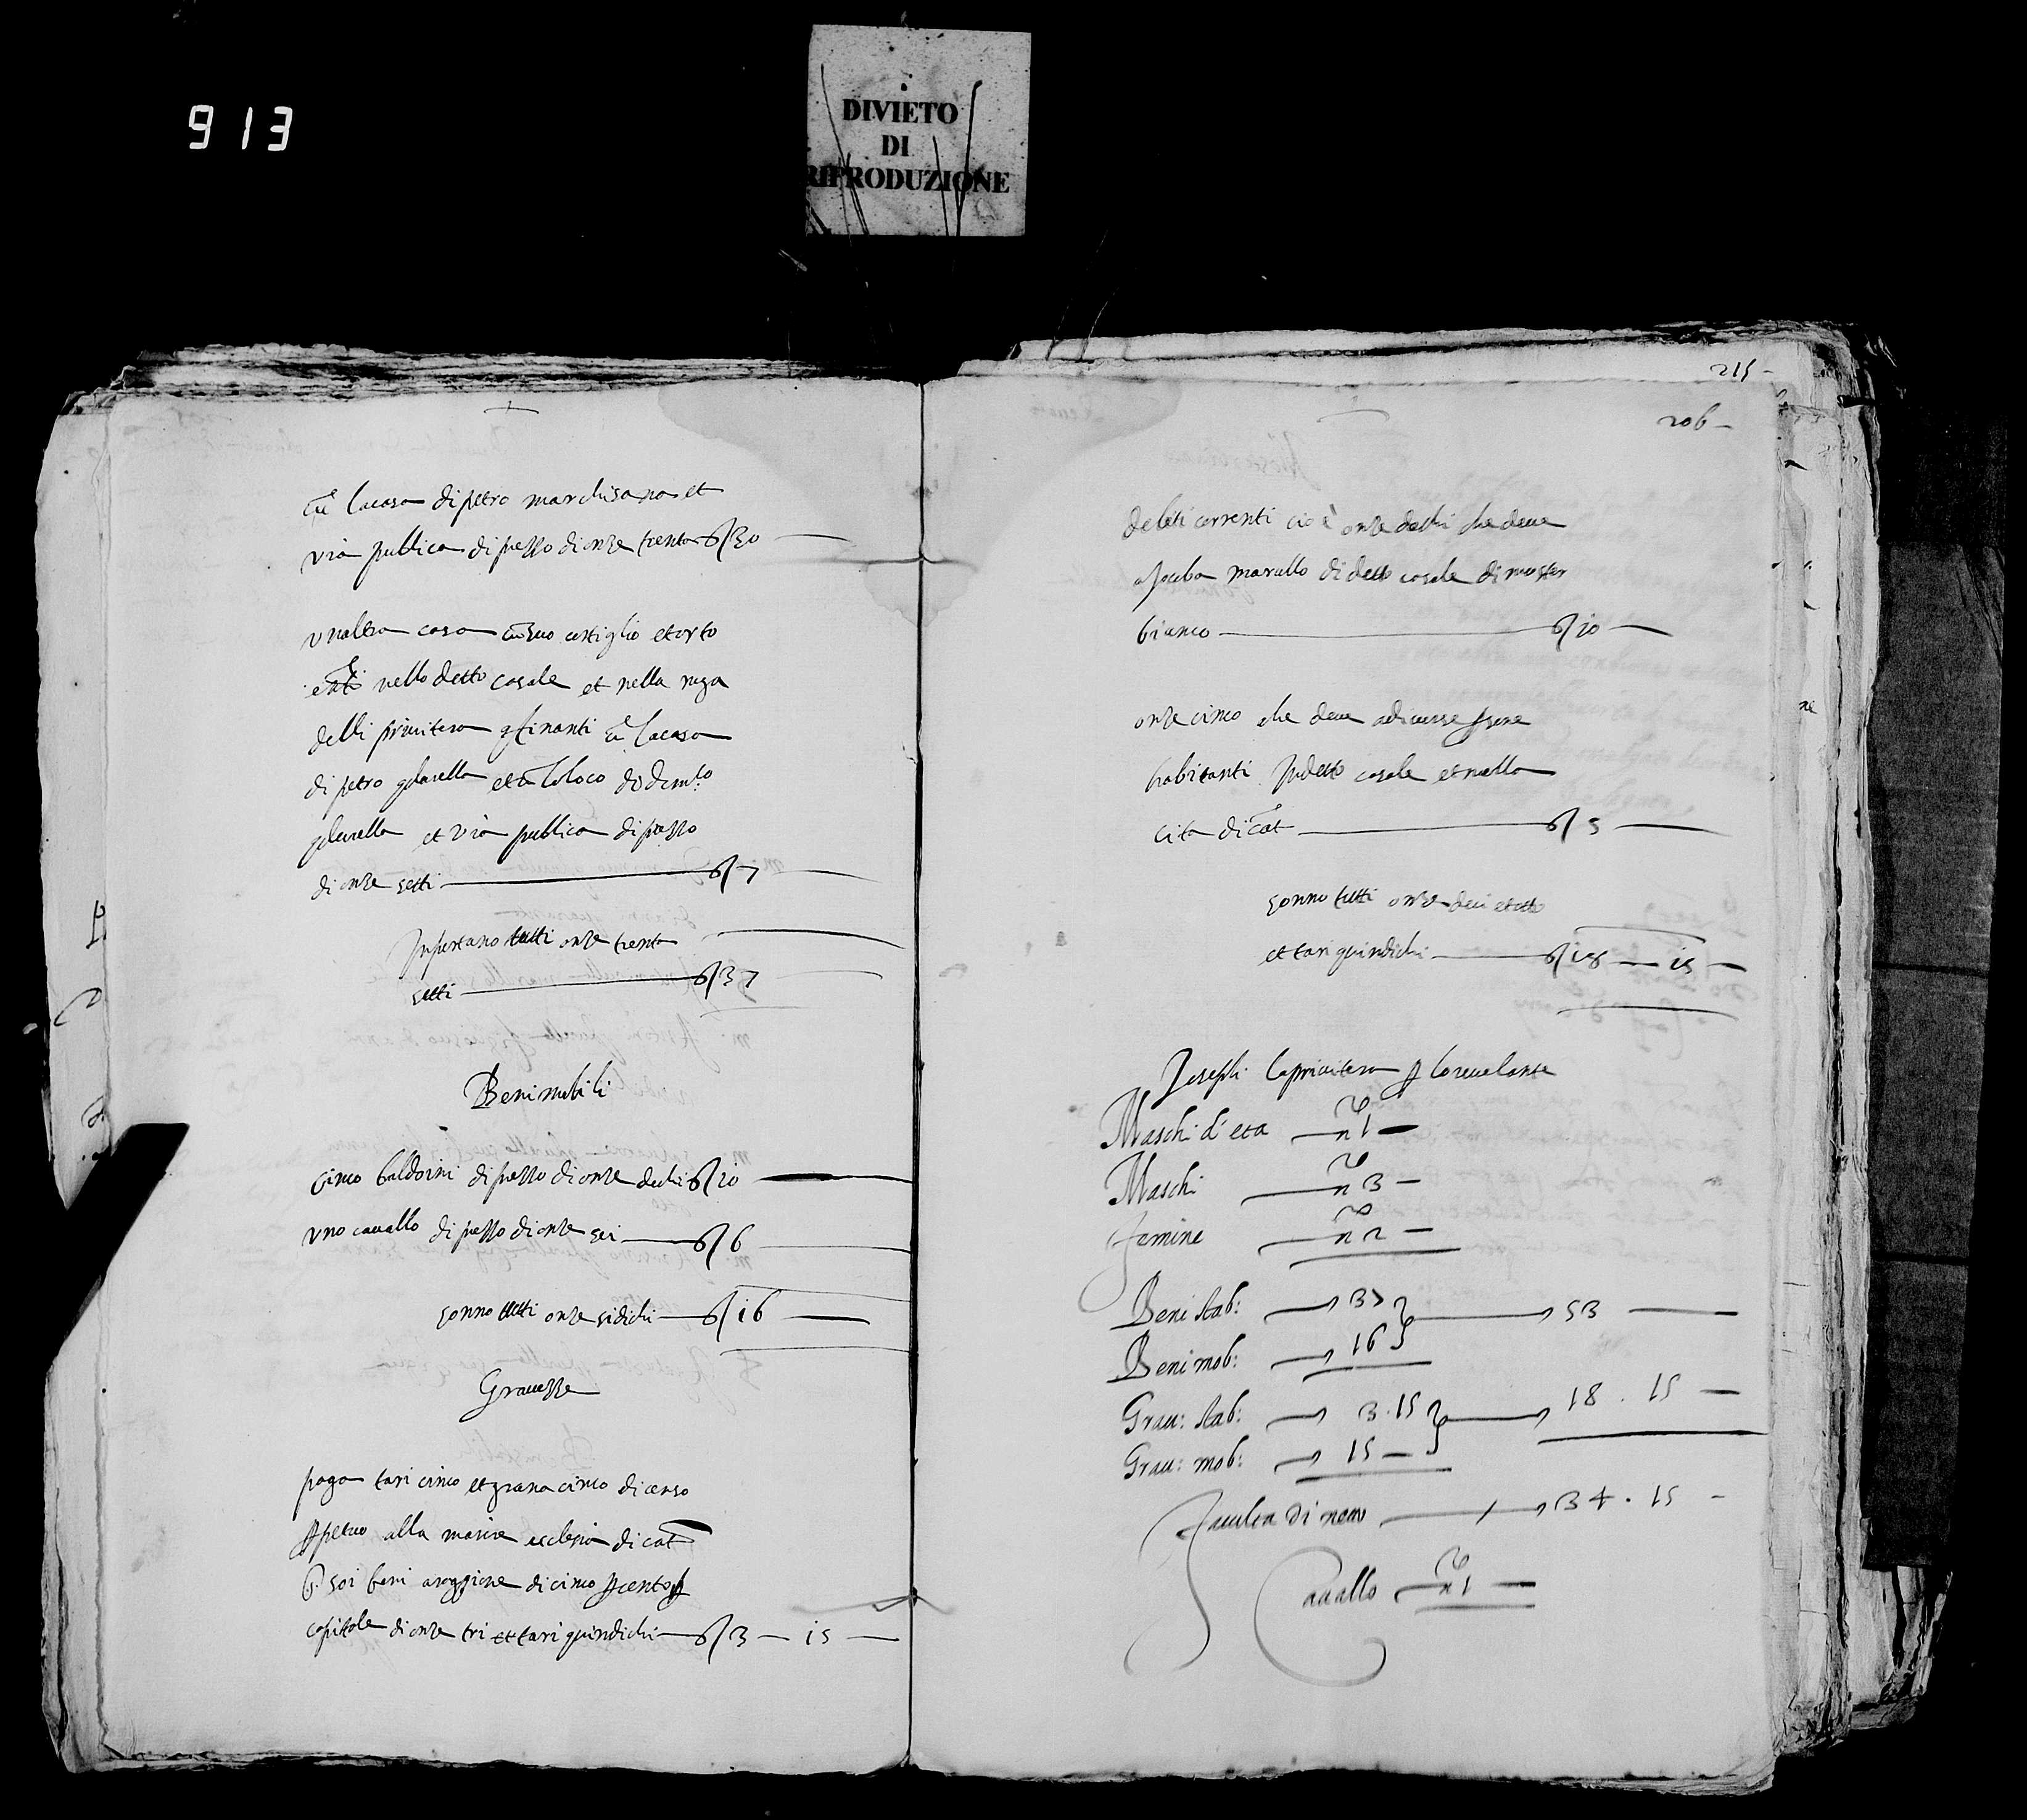 913
DIVIETO
DI
RIPRODUZIONE
cū la casa di petro marchisana et
via publica di prezzo di onze trenta 30
unaltra casa cū suo cortiglio et orto
nello detto casale et nella ruga
delli privitera cfinanti cū la casa
di petro et cū lo loco di
et via publica di prezzo
di onze setti 7
Inportano tutti onze trenta
setti 37
Beni mobili
cinco baldoini di prezzo di onze dechi 10
uno cavallo di prezzo di onze sei 6
sonno tutti onze sidichi 16
Gravezze
paga tari cinco et grana cinco di censo
ppetuo alla maiore ecclesia di cat
soi beni a raggione di cinco p cento p
capitale di onze tri et tari quindichi 3 15
215
206
debiti correnti cio è onze dechi che deve
marullo di detto casale di muster
bianco 10
onze cinco che deve a diverse psone
habitanti In detto casale et nella
cita di cat 5
sonno tutti onze deci etotto
et tari quindichi 18 15
Joseph la privitera p lo revelante
Maschi d'eta n 1
Maschi n 3
femine n 2
Beni stab: 37 53
Beni mob: 16
Grav: stab: 3.15 18.15
Grav: mob: 15
faculta di netto 34.15
Cavallo n 1